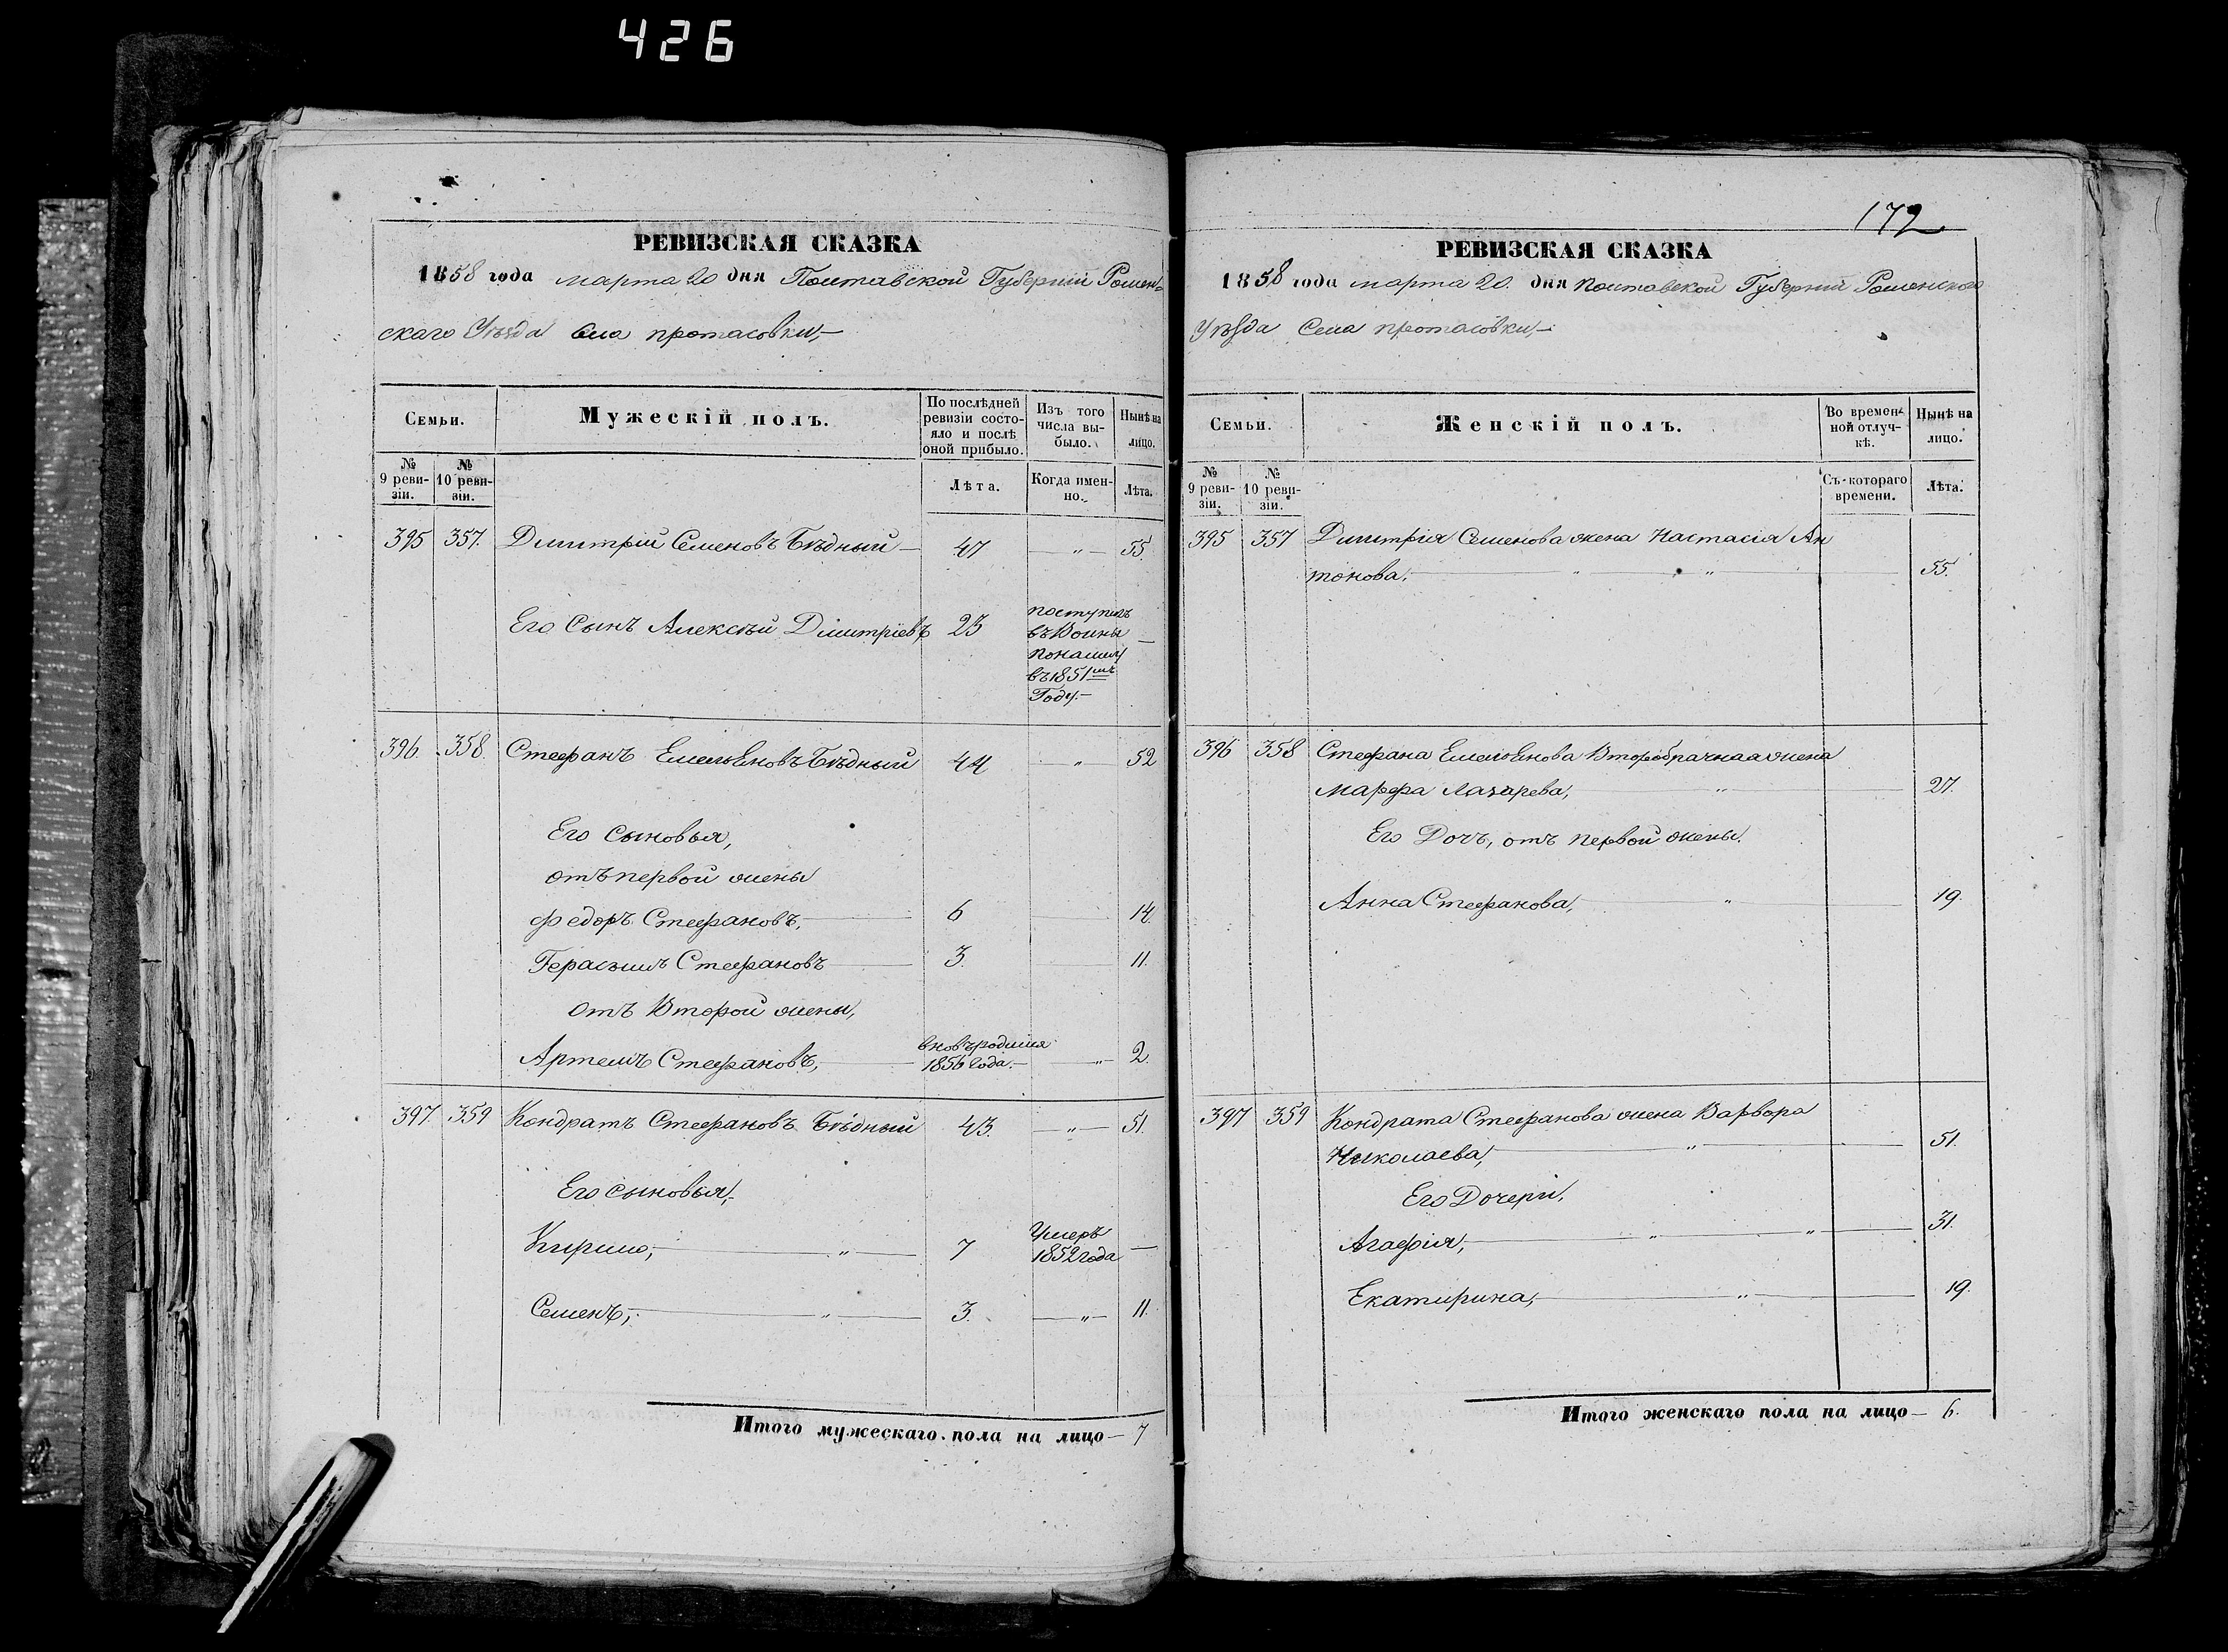 426
РЕВИЗСКАЯ СКАЗКА
1858 года марта 20 дня Полтавской Губерніи Ромен-
скаго Уѣзда Села протасовки,
Семьи.
Мужескій полъ.
По послѣдней ревизіи состояло и послѣ оной прибыло.
Изъ того числа выбыло.
Нынѣ на лицо.
№ 9 ревизіи.
№ 10 ревизіи.
Лѣта.
Когда именно.
Лѣта.
395 357. Димитрій Семеновъ Бѣдный – 47 — " — 55.
Его Сынъ Алексѣй Дмитріевъ 23 поступилъ
въ Воины
понайму
въ 1851мъ
Году. –
396. 358. Стефанъ Емельяновъ Бѣдный 44 — " 52
Его Сыновья,
отъ первой жены
Федоръ Стефановъ, 6 14.
Герасимъ Стефановъ 3. 11.
отъ Второй жены,
Артемъ Стефановъ, вновьродился
1856 года. — " — 2
397. 359 Кондратъ Стефановъ Бѣдный 43. — " — 51.
Его сыновья,
Кирило, — " — 7 Умеръ
1852 года —
Семенъ, — " — 3. — " — 11.
Итого мужескаго пола на лицо – 7
172
РЕВИЗСКАЯ СКАЗКА
1858 года марта 20. дня полтавской Губерніи Роменского
Уѣзда Села протасовки,
Семьи.
Женскій полъ.
Во временной отлучкѣ.
Нынѣ на лицо.
№ 9 ревизіи.
№ 10 ревизіи.
Съ котораго времени.
Лѣта.
395 357 Димитрія Семенова жена Настасія Ан
тонова. — " — " — 55.
396 358 Стефана Емельянова Второбрачная жена
Марфа Лазарева, — " — 27.
Его Дочь, отъ первой жены.
Анна Стефанова, — " — 19.
397 359 Кондрата Стефанова жена Варвора
Николаева, — " — 51.
Его Дочери,
Агафія, — " — " — 31.
Екатирина, — " — 19.
Итого женскаго пола на лицо – 6.